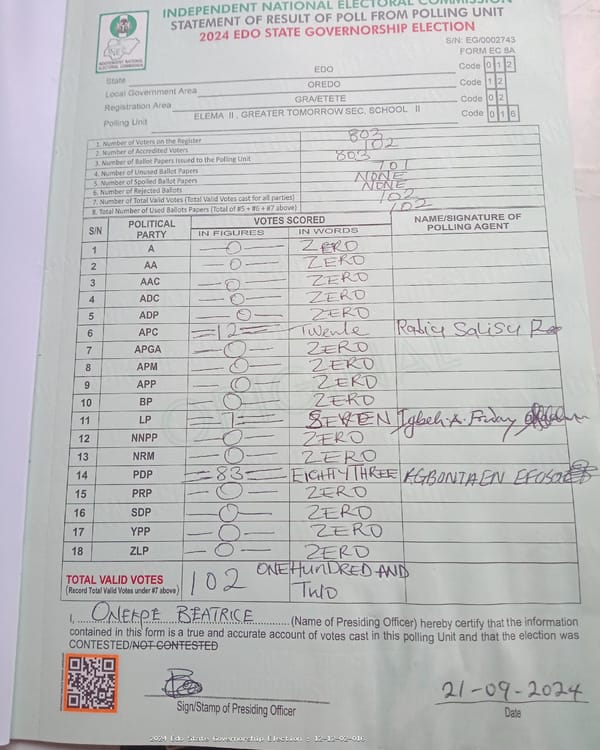 INDEPENDENT NATIONAL ELECTORAL COMMISSION
STATEMENT OF RESULT OF POLL FROM POLLING UNIT
2024 EDO STATE GOVERNORSHIP ELECTION
INDEPENDENT NATIONAL ELECTORAL COMMISSION
S/N: EG/0002743
FORM EC 8A
State EDO Code 0 1 2
Local Government Area OREDO Code 1 2
Registration Area GRA/ETETE Code 0 2
Polling Unit ELEMA II , GREATER TOMORROW SEC, SCHOOL II Code 0 1 6
1. Number of Voters on the Register 803
2. Number of Accredited Voters 102
3. Number of Ballot Papers Issued to the Polling Unit 803
4. Number of Unused Ballot Papers 701
5. Number of Spoiled Ballot Papers NONE
6. Number of Rejected Ballots NONE
7. Number of Total Valid Votes (Total Valid Votes cast for all parties) 102
8. Total Number of Used Ballots Papers (Total of #5 + #6 + #7 above) 102
S/N POLITICAL PARTY VOTES SCORED NAME/SIGNATURE OF POLLING AGENT
IN FIGURES IN WORDS
1 A 0 ZERO
2 AA 0 ZERO
3 AAC 0 ZERO
4 ADC 0 ZERO
5 ADP 0 ZERO
6 APC =12= Twenle Salisu
7 APGA 0 ZERO
8 APM 0 ZERO
9 APP 0 ZERO
10 BP 0 ZERO
11 LP 7 SEVEN Igbeh .A. Friday
12 NNPP 0 ZERO
13 NRM 0 ZERO
14 PDP =83= EIGHTY THREE
15 PRP 0 ZERO
16 SDP 0 ZERO
17 YPP 0 ZERO
18 ZLP 0 ZERO
TOTAL VALID VOTES 102 ONE HUNDRED AND
(Record Total Valid Votes under #7 above) TWO
I, ONEKPE BEATRICE (Name of Presiding Officer) hereby certify that the information
contained in this form is a true and accurate account of votes cast in this polling Unit and that the election was
CONTESTED/NOT CONTESTED
21-09-2024
Sign/Stamp of Presiding Officer Date
2024 Edo State Governorship Election : 12-12-02-016